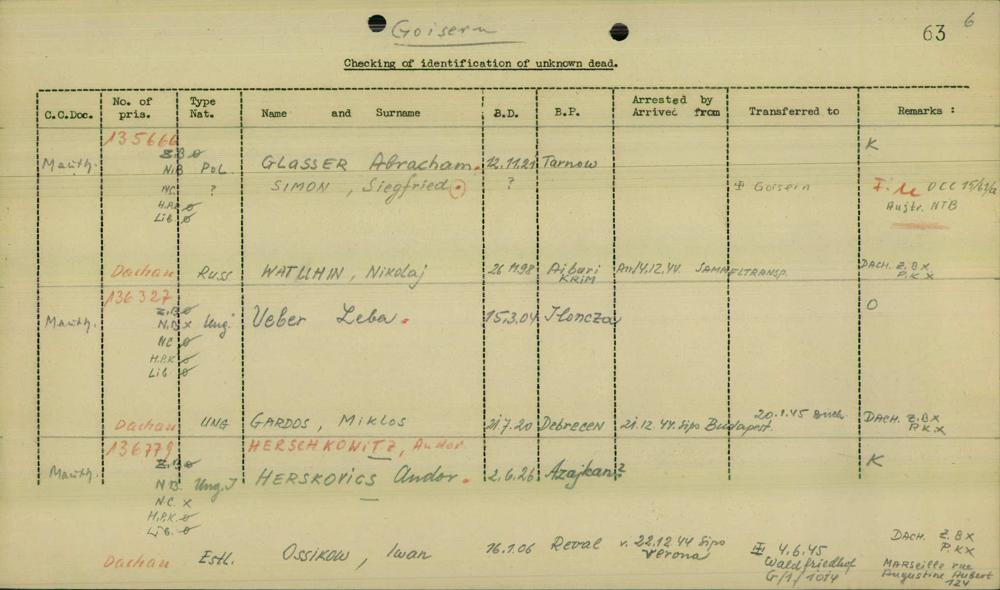 Goisern
63 6
Checking of identification of unknown dead.
C.C.Doc. No. of pris. Type Nat. Name and Surname B.D. B.P. Arrested by Arrived from Transferred to Remarks :
135666 K
Z.B ø
Mauth. N.B Pol. GLASSER Abracham. 12.11.21 Tarnow
N.C. ? SIMON, Siegfried. ? Goisern DCC 15/61/a
H.P.K ø Austr. NTB
Lib ø
Dachau Russ WATUHIN, Nikolaj 26 11.98 Aibari KRIM Am 14.12.44. SAMMELTRANSP. DACH. Z.B X
P.K X
136327 O
Z.B ø
Mauth. N.B X Ung. Ueber Leba. 15.3.04 Iloncza
N.C ø
H.P.K ø
Lib ø
20.1.45 Buch.
Dachau UNG GARDOS, Miklos 21.7.20 Debrecen 21.12.44. Sipo Budapest. DACH. Z.B X
P.K X
136779 HERSCHKOWITZ, Andor
Z.B ø K
Mauth. N.B. Ung. J HERSKOVICS Andor. 2.6.26 Azajkani?
N.C. X
H.P.K. ø
Lib. ø
Dachau Estl. OSSIKOW, Iwan 16.1.06 Reval v. 22.12 44 Sipo Verona 4.6.45 DACH. Z.B X
P.K X
Waldfriedhof MARSEILLE rue
G/1/1014 Augustine Aubert
124